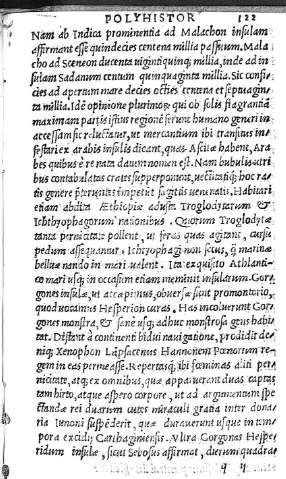 POLYHISTOR 122
Nam ab Indica prominentia ad Malachon insulam
affirmant esse quindecies centena millia passuum. Mala
cho ad Sceneon ducenta uigintiquinq; millia, inde ad in
sulam Sadanum centum quinquaginta millia. Sic confi-
cies ad apertum mare decies octies centena et septuagin-
ta millia. Idē opinione plurimorū, qui ob solis flagrantiā
maximam partis istius regionē ferunt humano generi in-
accessam sic reluctatur, ut mercantium ibi transitus in-
festari ex arabis insulis dicant, quas Ascitæ habent, Ara
bes quibus è re nata datum nomen est. Nam bubulis utri
bus contabulatas crates supperponunt, uectitatiq; hoc ra-
tis genere prætereuntes impetunt sagittis uenenatis. Habitari
etiam abdita Æthiopiæ adusta Troglodytarum &
Ichthyophagorum nationibus. Quorum Troglodytæ
tanta pernicitate pollent, ut feras quas agitant, cursu
pedum assequantur. Ichtyophagi non secus, q̃ marinæ
belluæ nando in mari ualent. Ita exquisito Athlanti-
co mari usq; in occasum etiam meminit insularum. Gor-
gones insulæ, ut accepimus, obuersæ sunt promontorio,
quod uocamus Hesperion ceras. Has incoluerunt Gor-
gones monstra, & sanè usq; adhuc monstrosa gens habi
tat. Distant à continenti bidui nauigatione, prodidit de-
niq; Xenophon Lāpsacenus Hannonem Pœnorum re-
gem in eas permeasse. Repertasq; ibi fœminas aliti per-
nicitate, atq; ex omnibus, quæ apparuerant duas captas
tam hirto, atque aspero corpore, ut ad argumentum spe
ctandæ rei duarum cutes miraculi gratia inter dona-
ria Iunoni suspēderit, quæ durauerunt usque in tem-
pora excidij Carthaginensis. Vltra Gorgonas Hespe
ridum insulæ, sicut Sebosus affirmat, dierum quadra
q ij